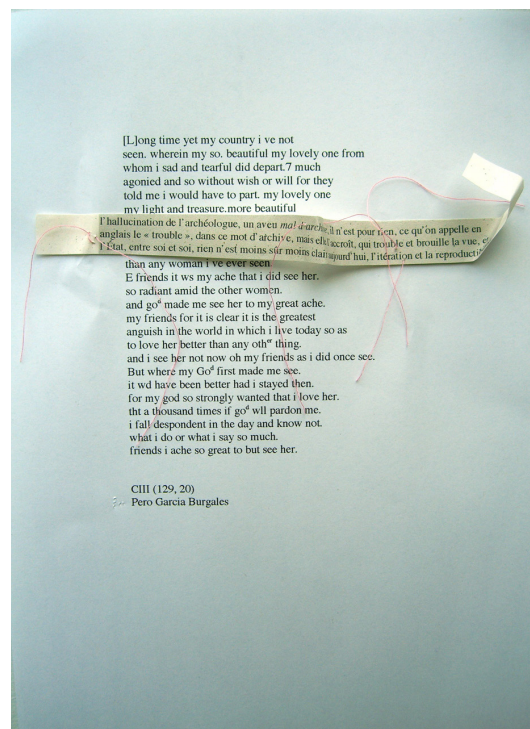 [L]ong time yet my country i ve not
seen. wherein my so. beautiful my lovely one from
whom i sad and tearful did depart.7 much
agonied and so without wish or will for they
told me i would have to part. my lovely one
my light and treasure.more beautiful
l'hallucination de l'archéologue, un aveu mal d'archive, il n'est pour rien, ce qu'on appelle en
anglais le « trouble », dans ce mot d'archive, mais elle accroît, qui trouble et brouille la vue,
l'État, entre soi et soi, rien n'est moins sûr moins clair aujourd'hui, l'itération et la
than any woman i've ever seen
E friends it ws my ache that i did see her.
so radiant amid the other women.
and goᵈ made me see her to my great ache.
my friends for it is clear it is the greatest
anguish in the world in which i live today so as
to love her better than any othᵉʳ thing.
and i see her not now oh my friends as i did once see.
But where my Goᵈ first made me see.
it wd have been better had i stayed then.
for my god so strongly wanted that i love her.
tht a thousand times if goᵈ wll pardon me.
i fall despondent in the day and know not.
what i do or what i say so much.
friends i ache so great to but see her.
CIII (129, 20)
Pero Garcia Burgales